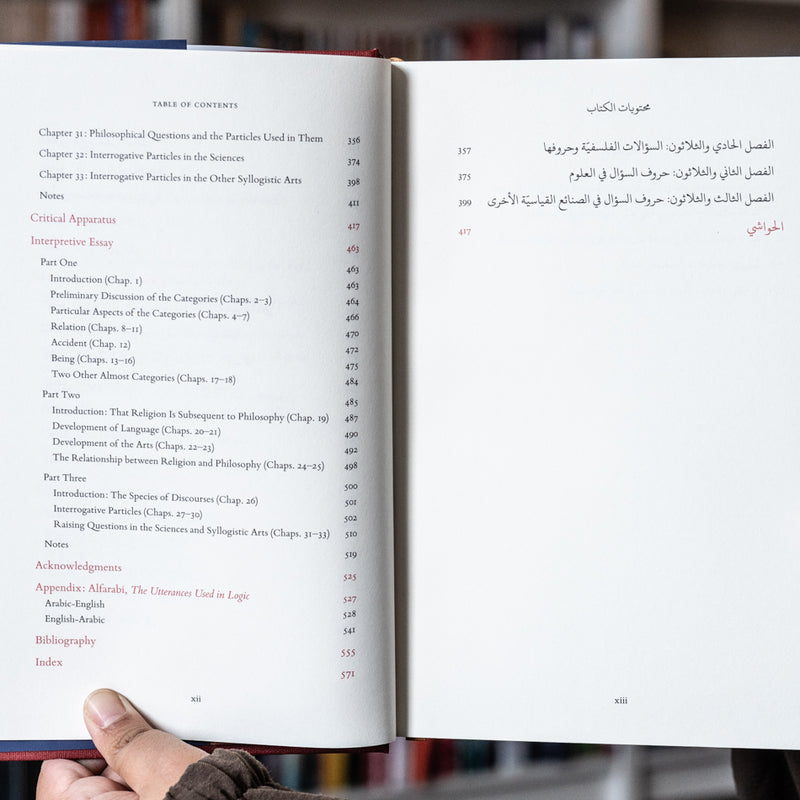 TABLE OF CONTENTS
Chapter 31: Philosophical Questions and the Particles Used in Them 356
Chapter 32: Interrogative Particles in the Sciences 374
Chapter 33: Interrogative Particles in the Other Syllogistic Arts 398
Notes 411
Critical Apparatus 417
Interpretive Essay 463
Part One 463
Introduction (Chap. 1) 463
Preliminary Discussion of the Categories (Chaps. 2–3) 464
Particular Aspects of the Categories (Chaps. 4–7) 466
Relation (Chaps. 8–11) 470
Accident (Chap. 12) 472
Being (Chaps. 13–16) 475
Two Other Almost Categories (Chaps. 17–18) 484
Part Two 485
Introduction: That Religion Is Subsequent to Philosophy (Chap. 19) 487
Development of Language (Chaps. 20–21) 490
Development of the Arts (Chaps. 22–23) 492
The Relationship between Religion and Philosophy (Chaps. 24–25) 498
Part Three 500
Introduction: The Species of Discourses (Chap. 26) 501
Interrogative Particles (Chaps. 27–30) 502
Raising Questions in the Sciences and Syllogistic Arts (Chaps. 31–33) 510
Notes 519
Acknowledgments 525
Appendix: Alfarabi, The Utterances Used in Logic 527
Arabic-English 528
English-Arabic 541
Bibliography 555
Index 571
xii
محتويات الكتاب
الفصل الحادي والثلاثون: السؤالات الفلسفيّة وحروفها 357
الفصل الثاني والثلاثون: حروف السؤال في العلوم 375
الفصل الثالث والثلاثون: حروف السؤال في الصنائع القياسيّة الأخرى 399
الحواشي 417
xiii